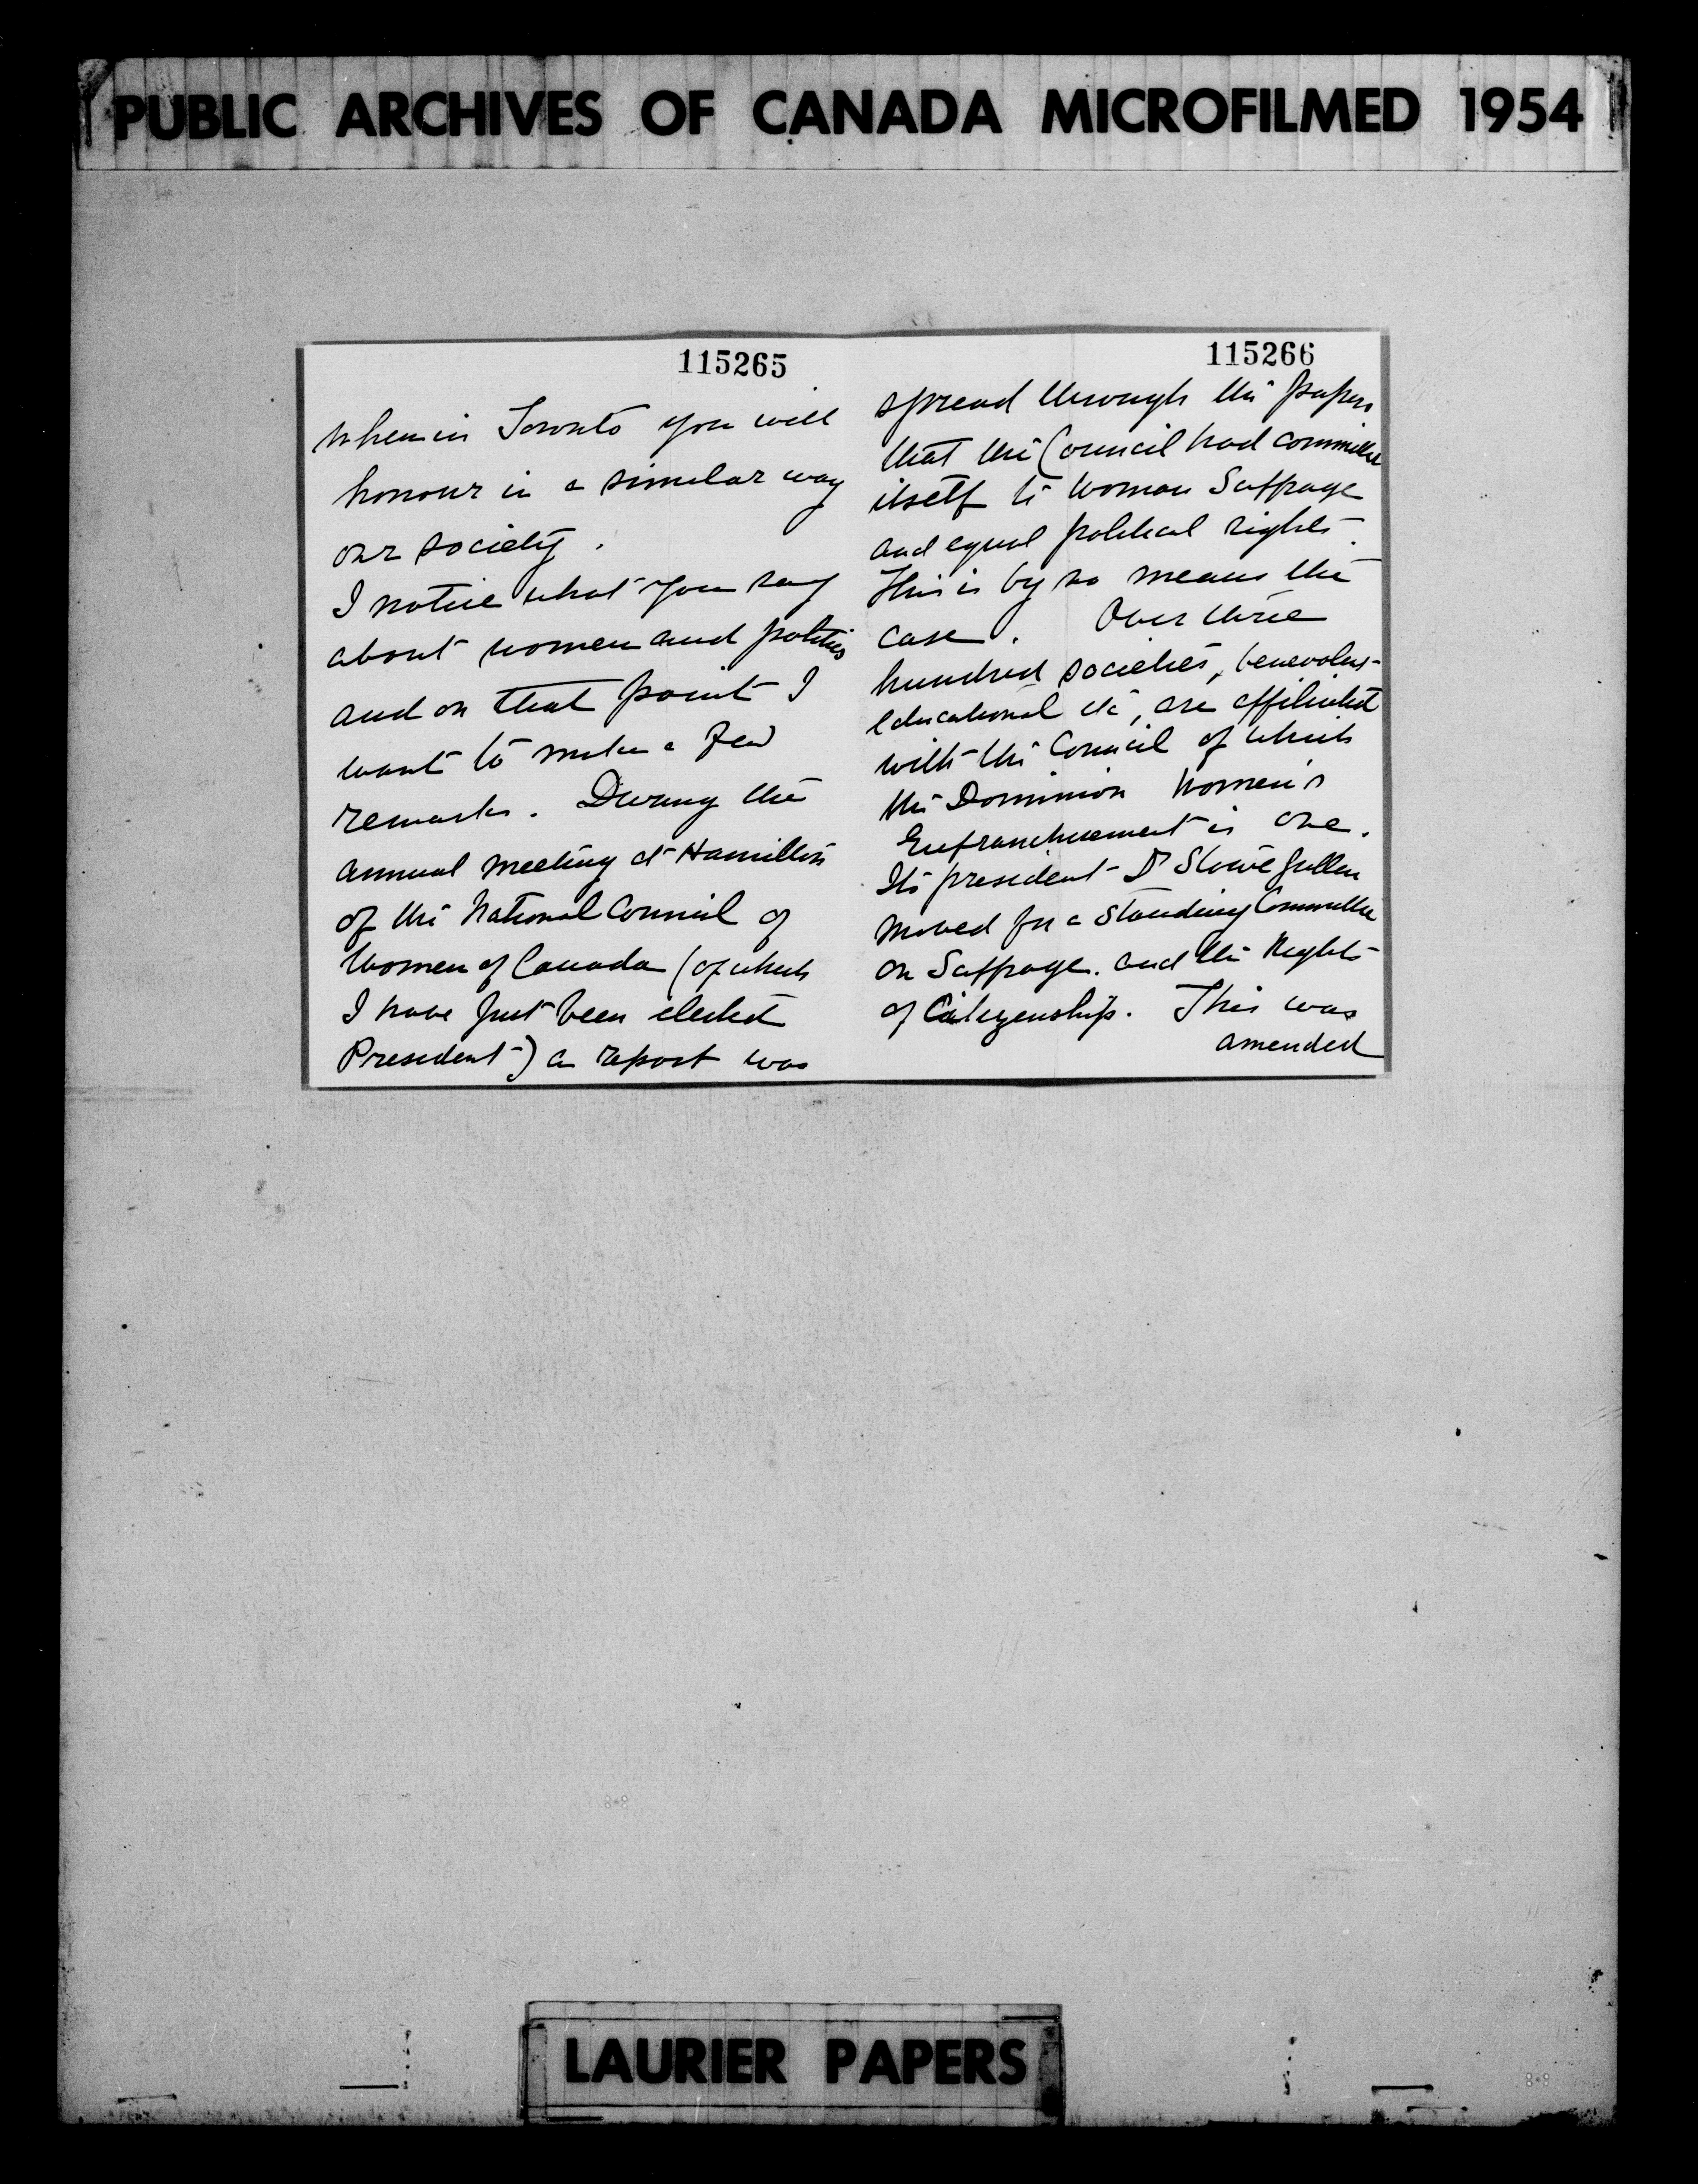 PUBLIC ARCHIVES OF CANADA MICROFILMED 1954
115265
when in Toronto you will
honour in a similar way
our society.
I notice what you say
about women and politics
and on that point I
want to make a few
remarks. During the
annual meeting at Hamilton
of the National Council of
Women of Canada (of which
I have just been elected
President) a report was
115266
spread through the papers
that the Council had committed
itself to Woman Suffrage
and equal political rights.
This is by no means the
case. Over three
hundred societies, benevolent
educational etc, are affiliated
with the Council of which
the Dominion Women's
Enfranchisement is one.
Its president Dr Stowe Gullen
moved for a Standing Committee
on Suffrage. and the Rights
of Citizenship. This was
amended
LAURIER PAPERS